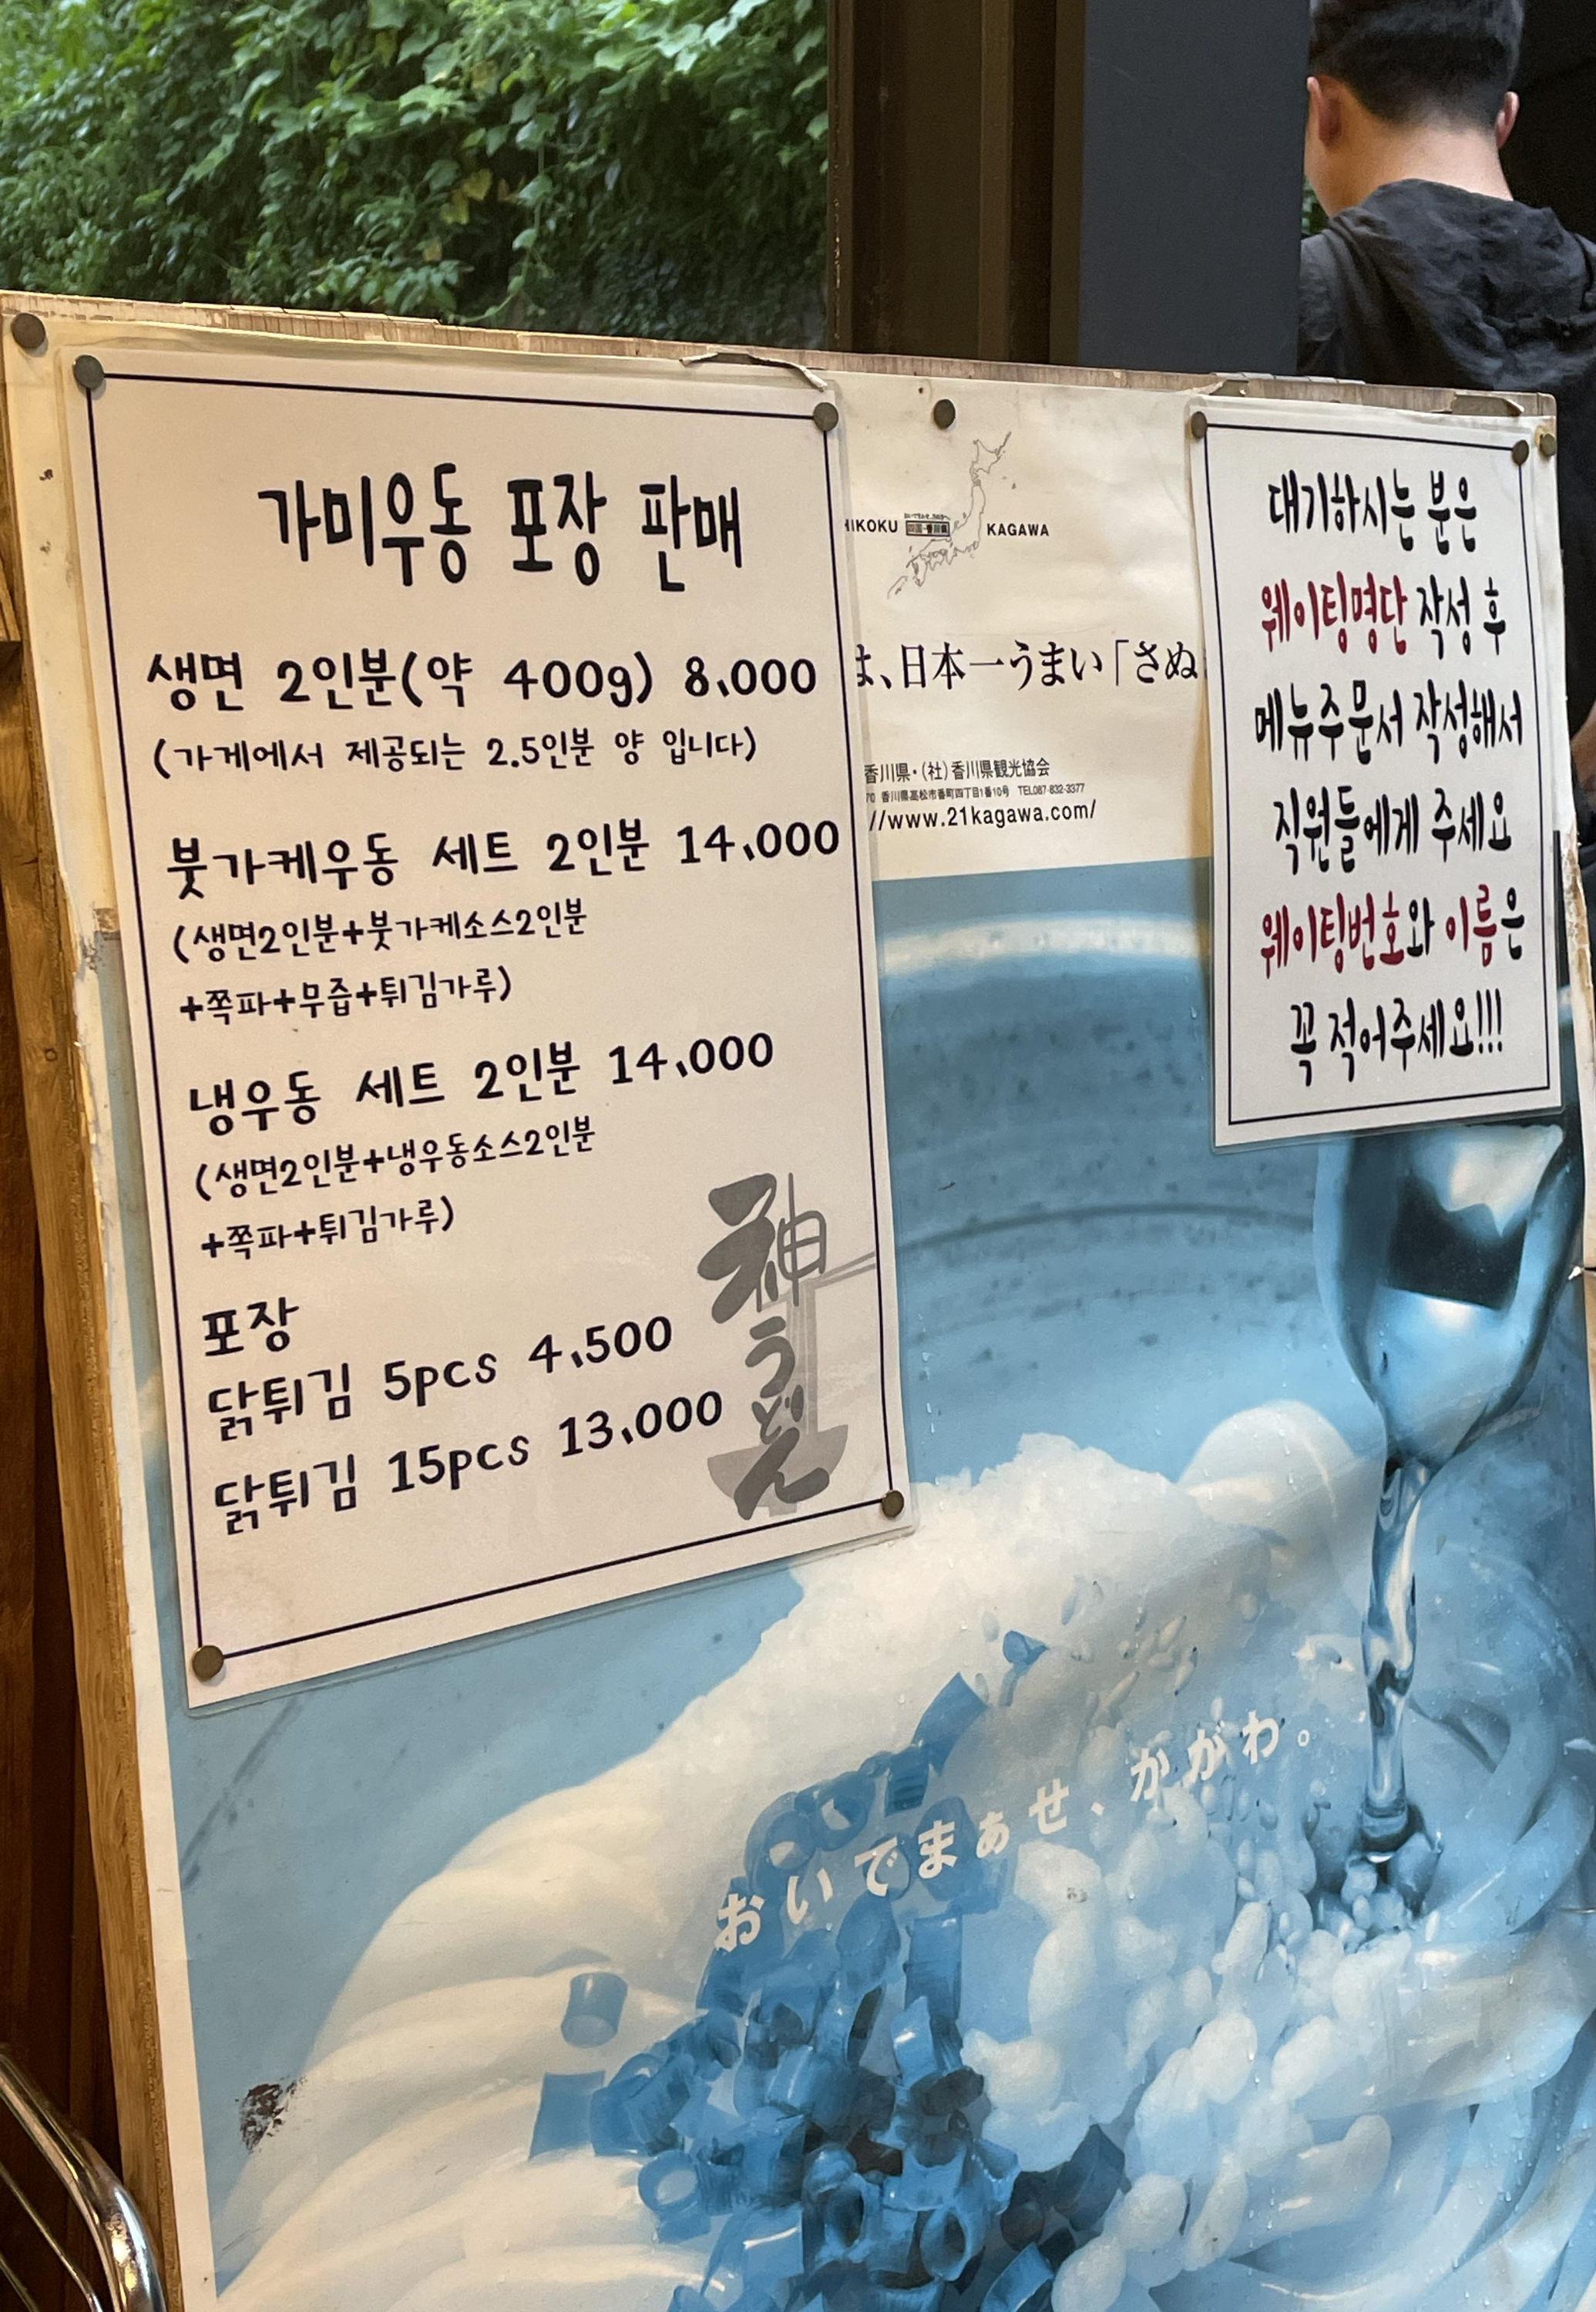 가미우동 포장 판매
생면 2인분(약 400g) 8,000
(가게에서 제공되는 2.5인분 양 입니다)
붓가케우동 세트 2인분 14,000
(생면2인분+붓가케소스2인분
+쪽파+무즙+튀김가루)
냉우동 세트 2인분 14,000
(생면2인분+냉우동소스2인분
+쪽파+튀김가루)
포장
닭튀김 5pcs 4,500
닭튀김 15pcs 13,000
神うどん
HIKOKU 四国・香川県 KAGAWA
は、日本一うまい「さぬ
香川県・(社)香川県観光協会
香川県高松市番町四丁目1番10号 TEL087-832-3377
//www.21kagawa.com/
대기하시는 분은
웨이팅명단 작성 후
메뉴주문서 작성해서
직원들에게 주세요
웨이팅번호와 이름은
꼭 적어주세요!!!
おいでまぁせ、かがわ。